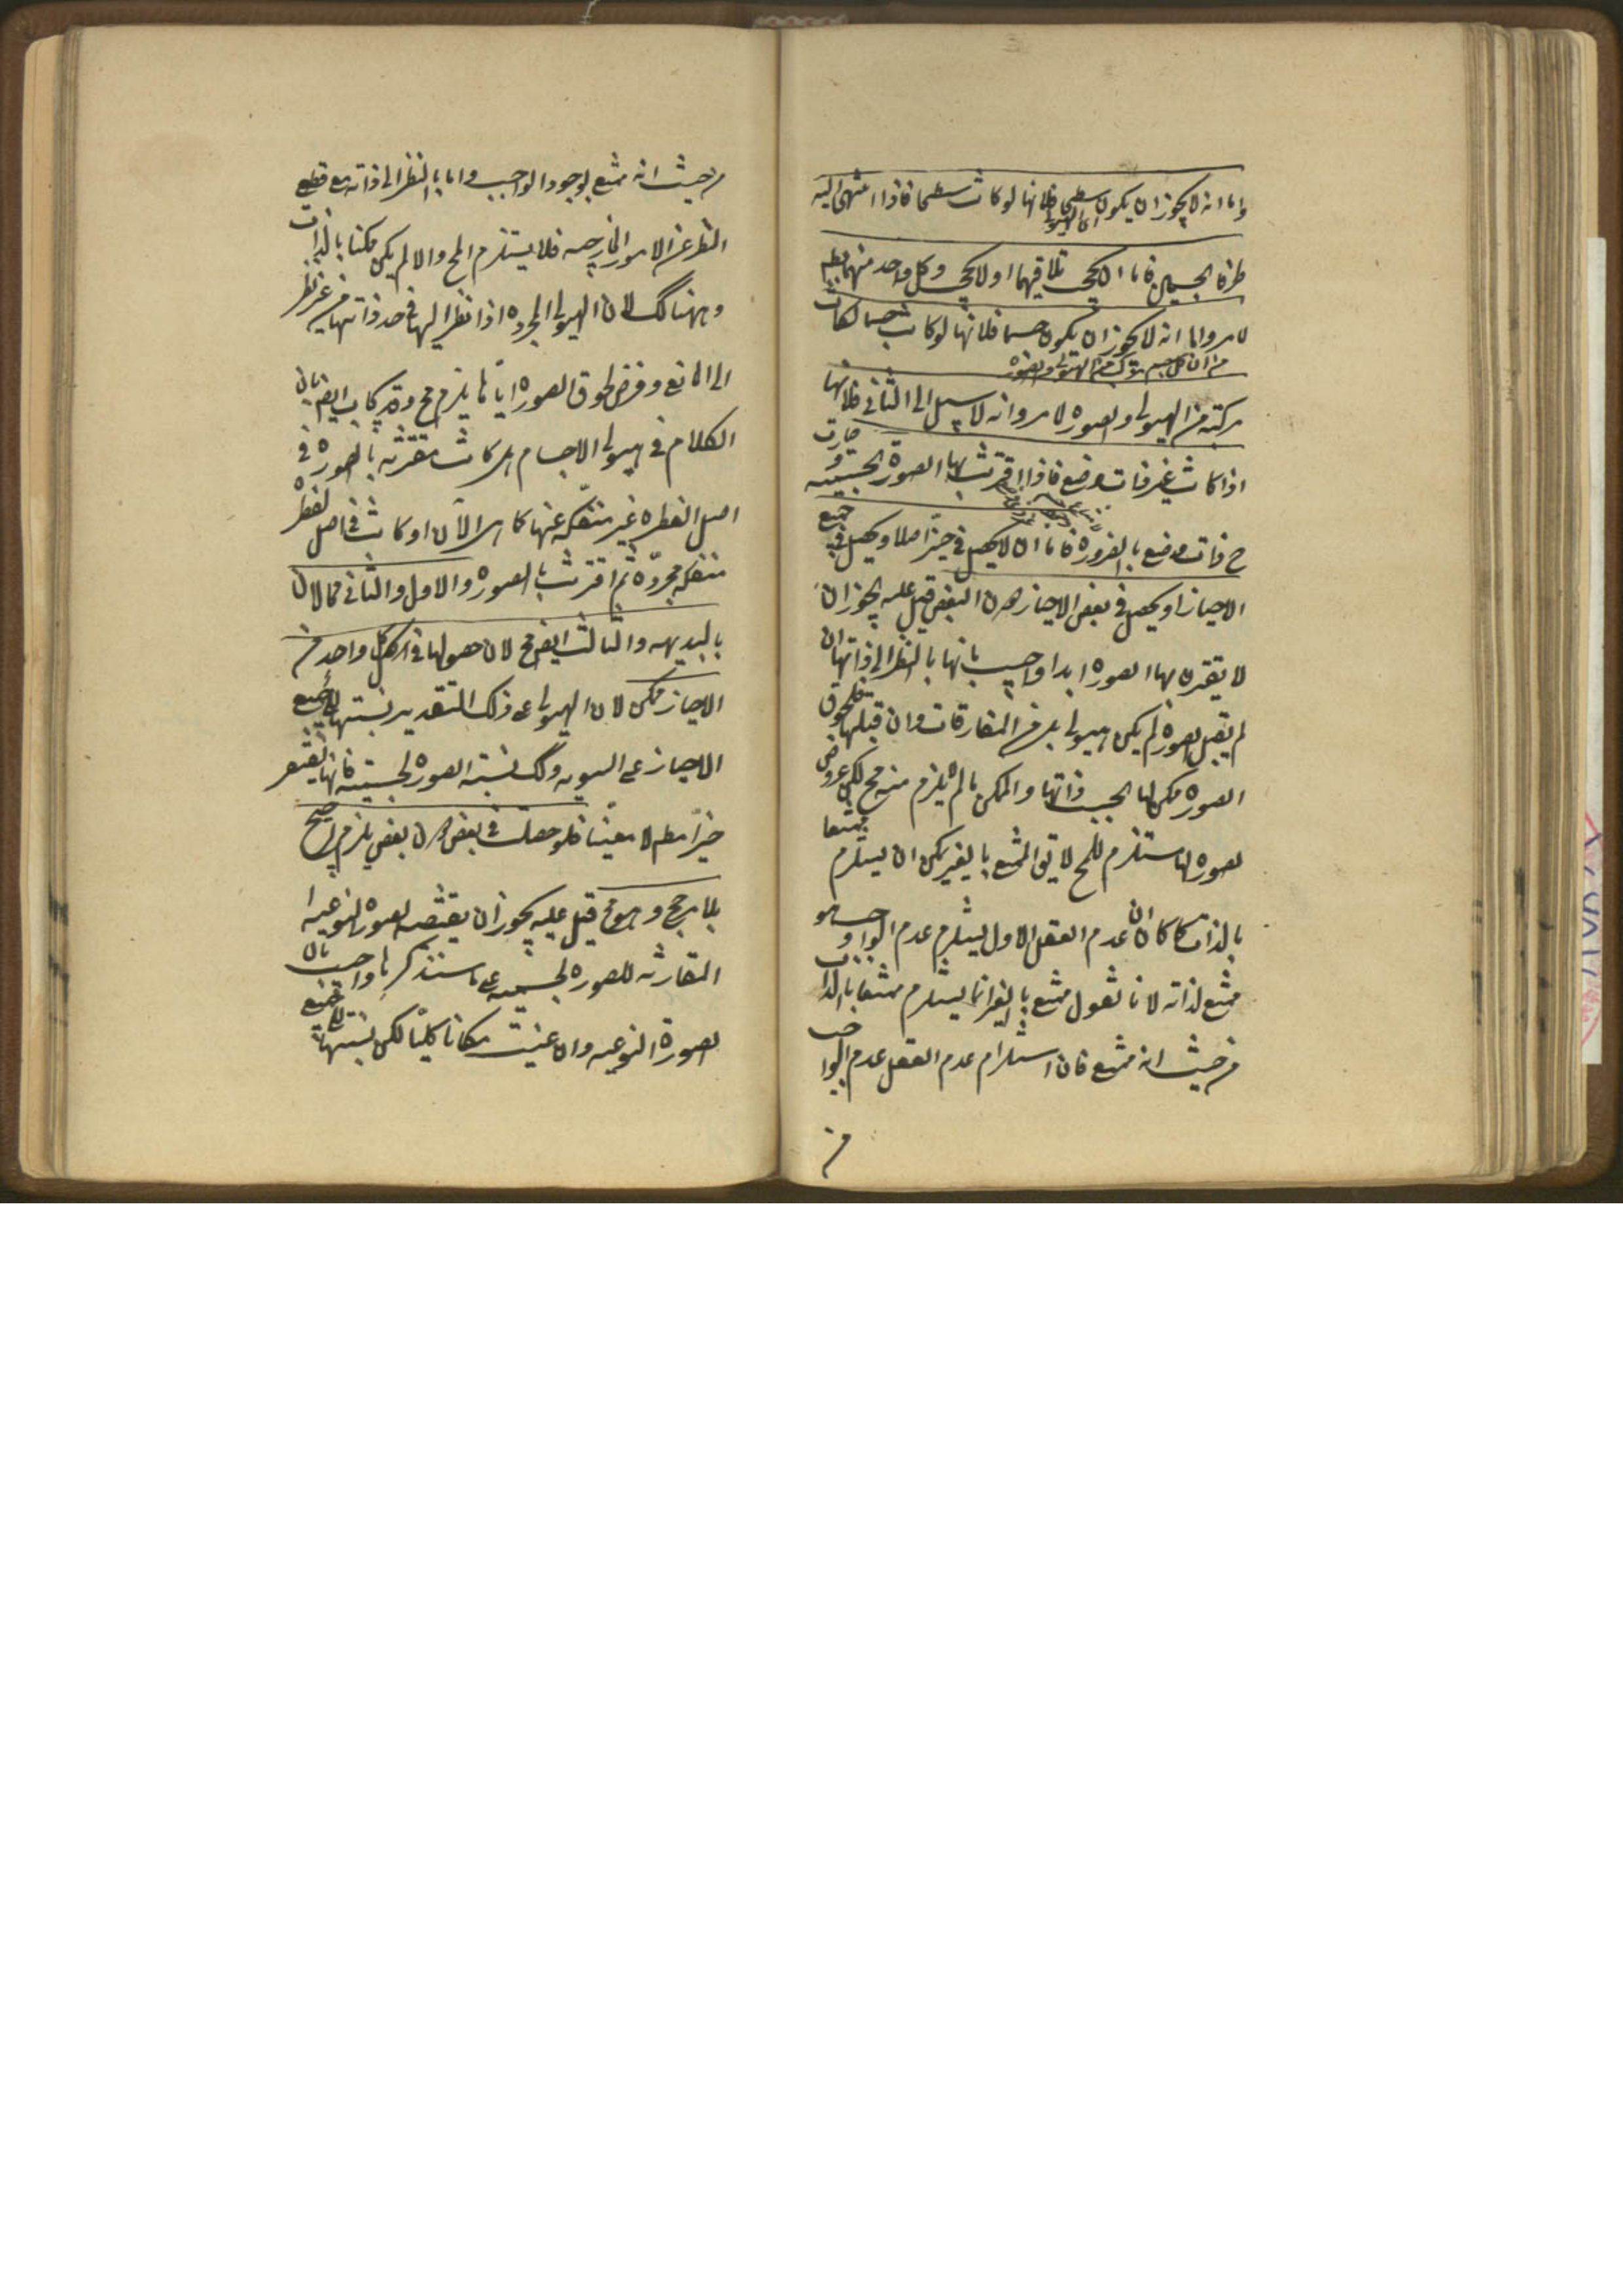 واما انه لا يجوز ان يكون سطحا فلانها لو كانت سطحا فاذا انتهى اليه
اى الهيولى
طرفا الجسمين فاما ان يحجب تلاقيهما او لا يحجب وكل واحد منهما بط
لما مر واما انه لا يجوز ان يكون جسما فلانها لو كانت جسما لكانت
من ان كل جسم مركب من الهيولى والصورة
مركبة من الهيولى والصورة لما مر وانه لا سبيل الى الثانى فلانها
اذا كانت غير ذات وضع فاذا اقترنت بها الصورة الجسمية و صارت
ح ذات وضع بالضرورة فاما ان لا يحصل فى حيز اصلا او يحصل فى جميع
الاحياز او يحصل فى بعض الاحياز دون البعض قيل عليه يجوز ان
لا يقترن بها الصورة ابدا واجيب بانها بالنظر الى ذاتها ان
لم يقبل الصورة لم يكن هيولى بل من المفارقات وان قبلها فلحوق
الصورة ممكن لها بحسب ذاتها والممكن ما لم يلزم منه مح لكن عروض
الصورة لها مستلزم للمح لا يق الممتنع بالغير يمكن ان يستلزم ممتنعا
بالذات كما ان عدم العقل الاول يستلزم عدم الواجب وهو
ممتنع لذاته لانا نقول ممتنع بالغير انما يستلزم ممتنعا بالذات
من حيث انه ممتنع فان استلزام عدم العقل عدم الواجب
من
من حيث انه ممتنع بوجود الواجب واما بالنظر الى ذاته مع قطع
النظر عن الامور الخارجية فلا يستلزم المح والا لم يكن ممكنا بالذات
وههنا كك لان الهيولى المجردة اذا نظر اليها فى حد ذاتها من غير نظر
الى المانع وفرض لحوق الصورة اياها يلزم مح وقد يجاب ايضا بان
الكلام فى هيولى الاجسام هل كانت مقترنة بالصورة فى
اصل الفطرة غير منفكة عنها كما هى الآن او كانت فى اصل الفطرة
منفكة مجردة ثم اقترنت بالصورة والاول والثانى محالان
بالبديهه والثالث ايضا مح لان حصولها فى كل واحد من
الاحياز ممكن لان الهيولى على ذلك التقدير نسبتها الى جميع
الاحياز على السوية وكك نسبة الصورة الجسمية فانها تقتضى
حيزا مط لا معينا فلو حصلت فى بعض دون بعض يلزم الترجيح
بلا مرجح وهو مح قيل عليه يجوز ان يقتضيه الصورة النوعية
المقارنة للصورة الجسمية على ما سنذكرها واجيب بان
الصورة النوعية وان عينت مكانا كليا لكن نسبتها الى جميع